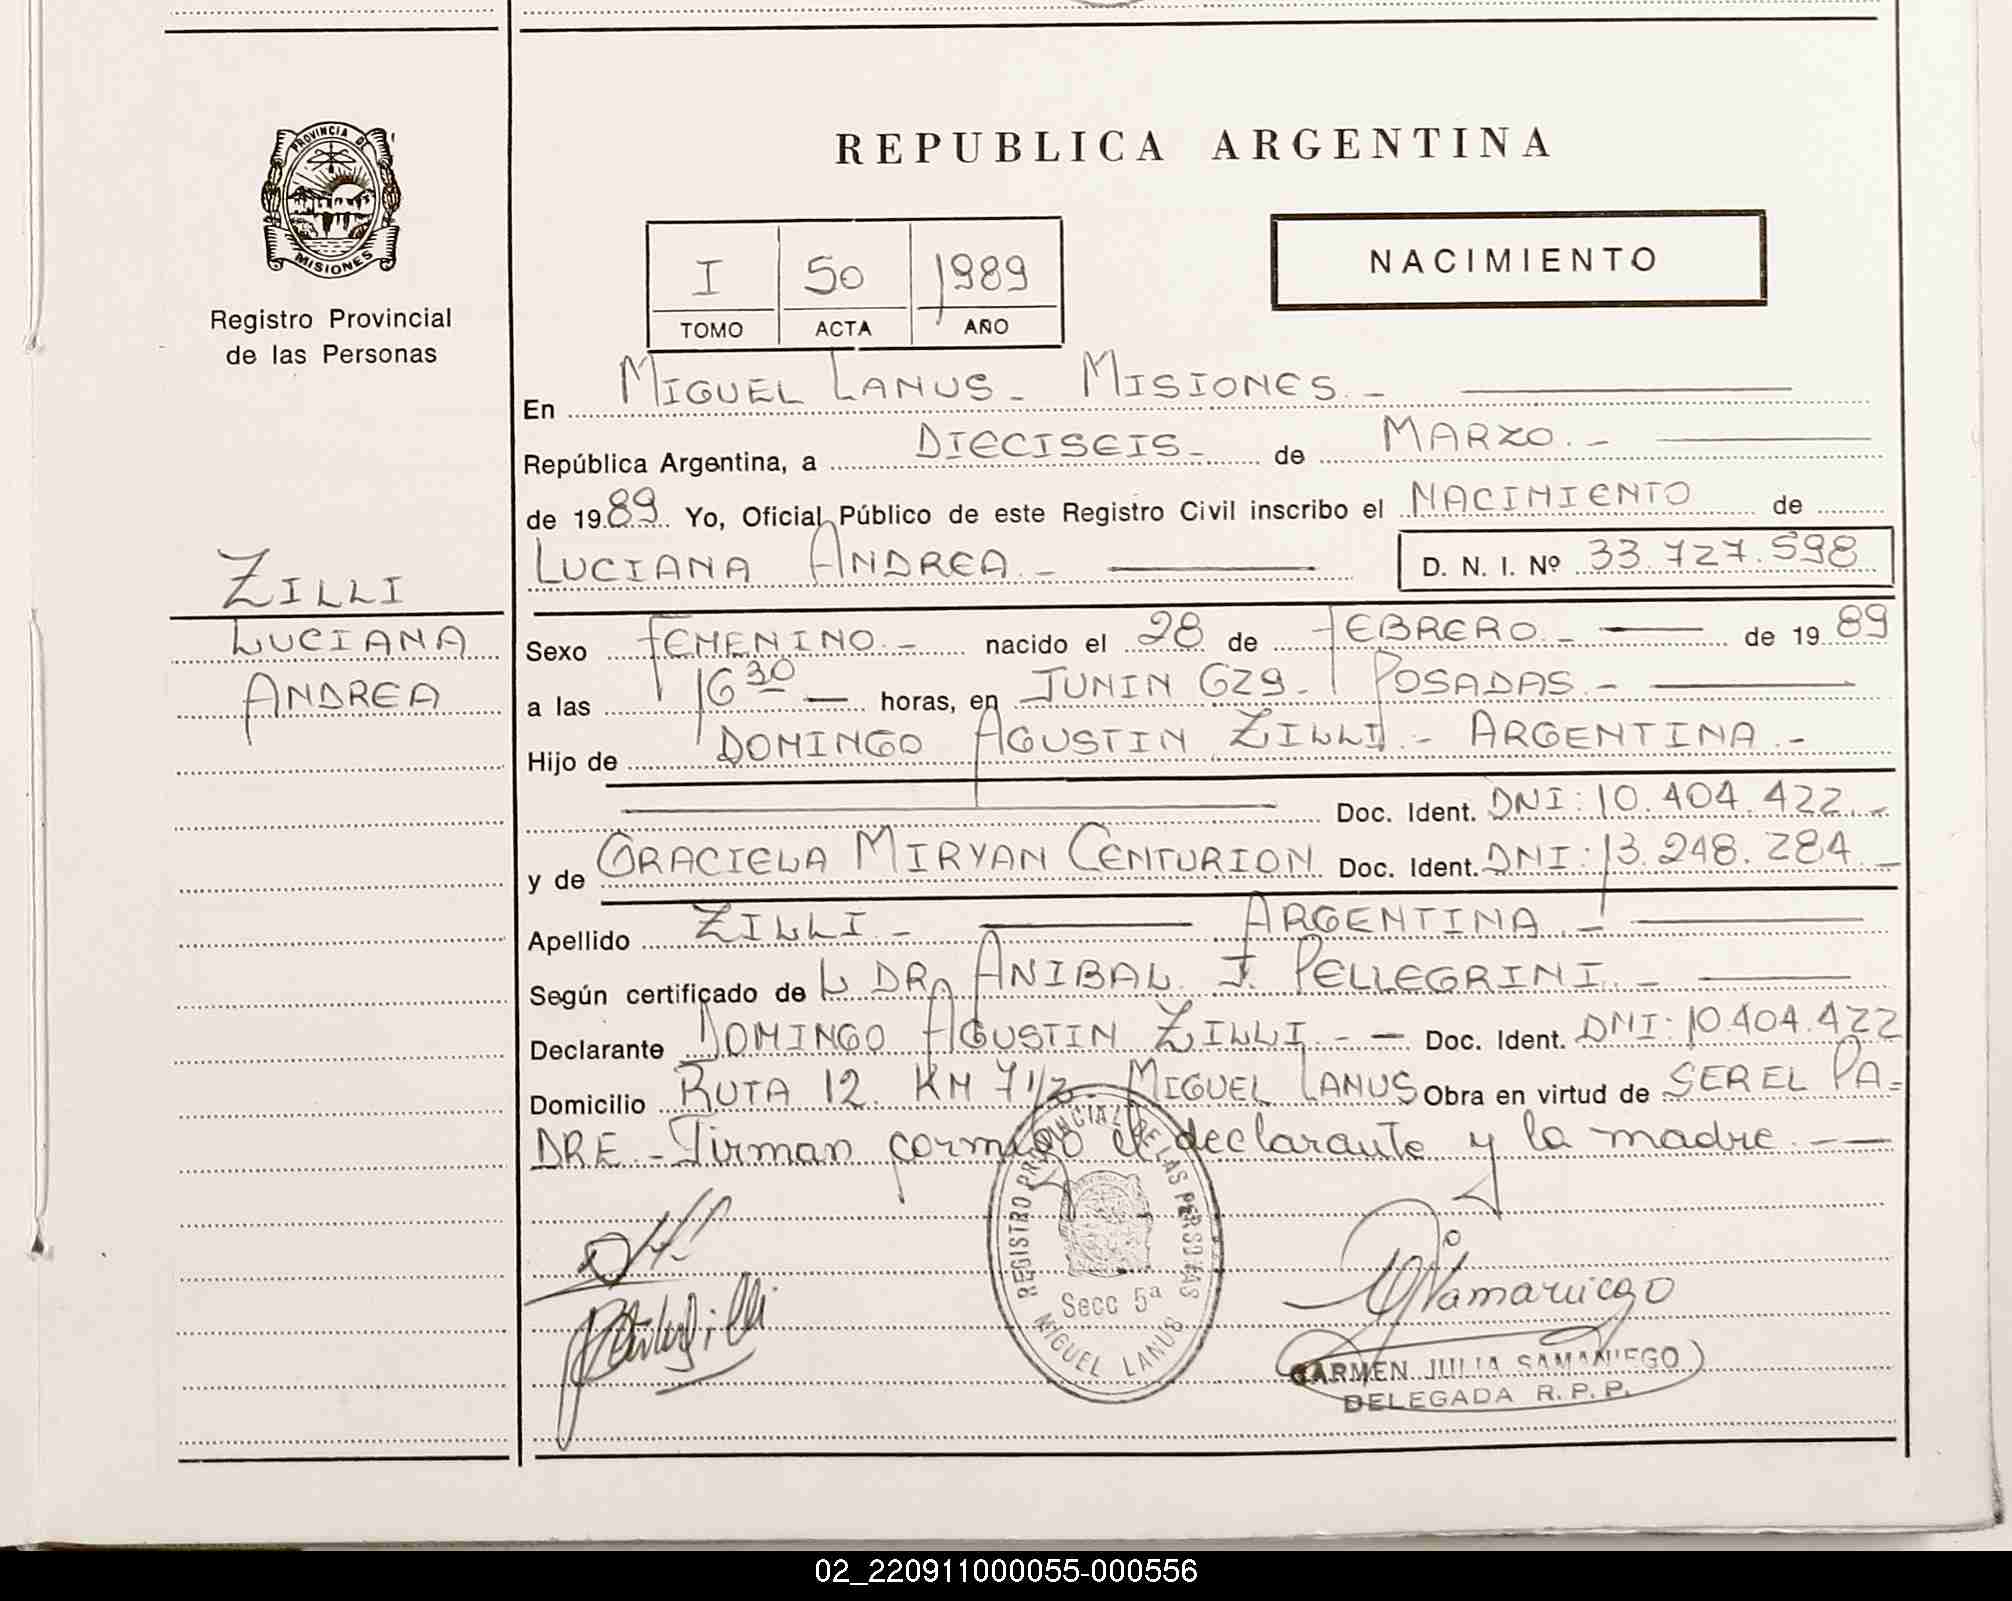 PROVINCIA DE
MISIONES
Registro Provincial
de las Personas
ZILLI
LUCIANA
ANDREA
REPUBLICA ARGENTINA
I 50 1989
TOMO ACTA AÑO
NACIMIENTO
En MIGUEL LANUS - MISIONES. -
República Argentina, a DIECISEIS - de MARZO. -
de 1989. Yo, Oficial Público de este Registro Civil inscribo el NACIMIENTO de
LUCIANA ANDREA. - D. N. I. Nº 33.727.598
Sexo FEMENINO. - nacido el 28 de FEBRERO. - de 1989
a las 16 30 horas, en JUNIN 629 - POSADAS. -
Hijo de DOMINGO AGUSTIN ZILLI. - ARGENTINA. -
Doc. Ident. DNI: 10.404.422. -
y de GRACIELA MIRYAN CENTURION Doc. Ident. DNI: 13.248.284. -
Apellido ZILLI. - ARGENTINA. -
Según certificado de L DR. ANIBAL J. PELLEGRINI. -
Declarante DOMINGO AGUSTIN ZILLI. - Doc. Ident. DNI: 10.404.422
Domicilio RUTA 12. KM 7 1/2 - MIGUEL LANUS Obra en virtud de SER EL PA=
DRE. - Firman conmigo el declarante y la madre. -
REGISTRO PROVINCIAL DE LAS PERSONAS
Secc 5ª
MIGUEL LANUS
CARMEN JULIA SAMANIEGO
DELEGADA R. P. P.
02_220911000055-000556